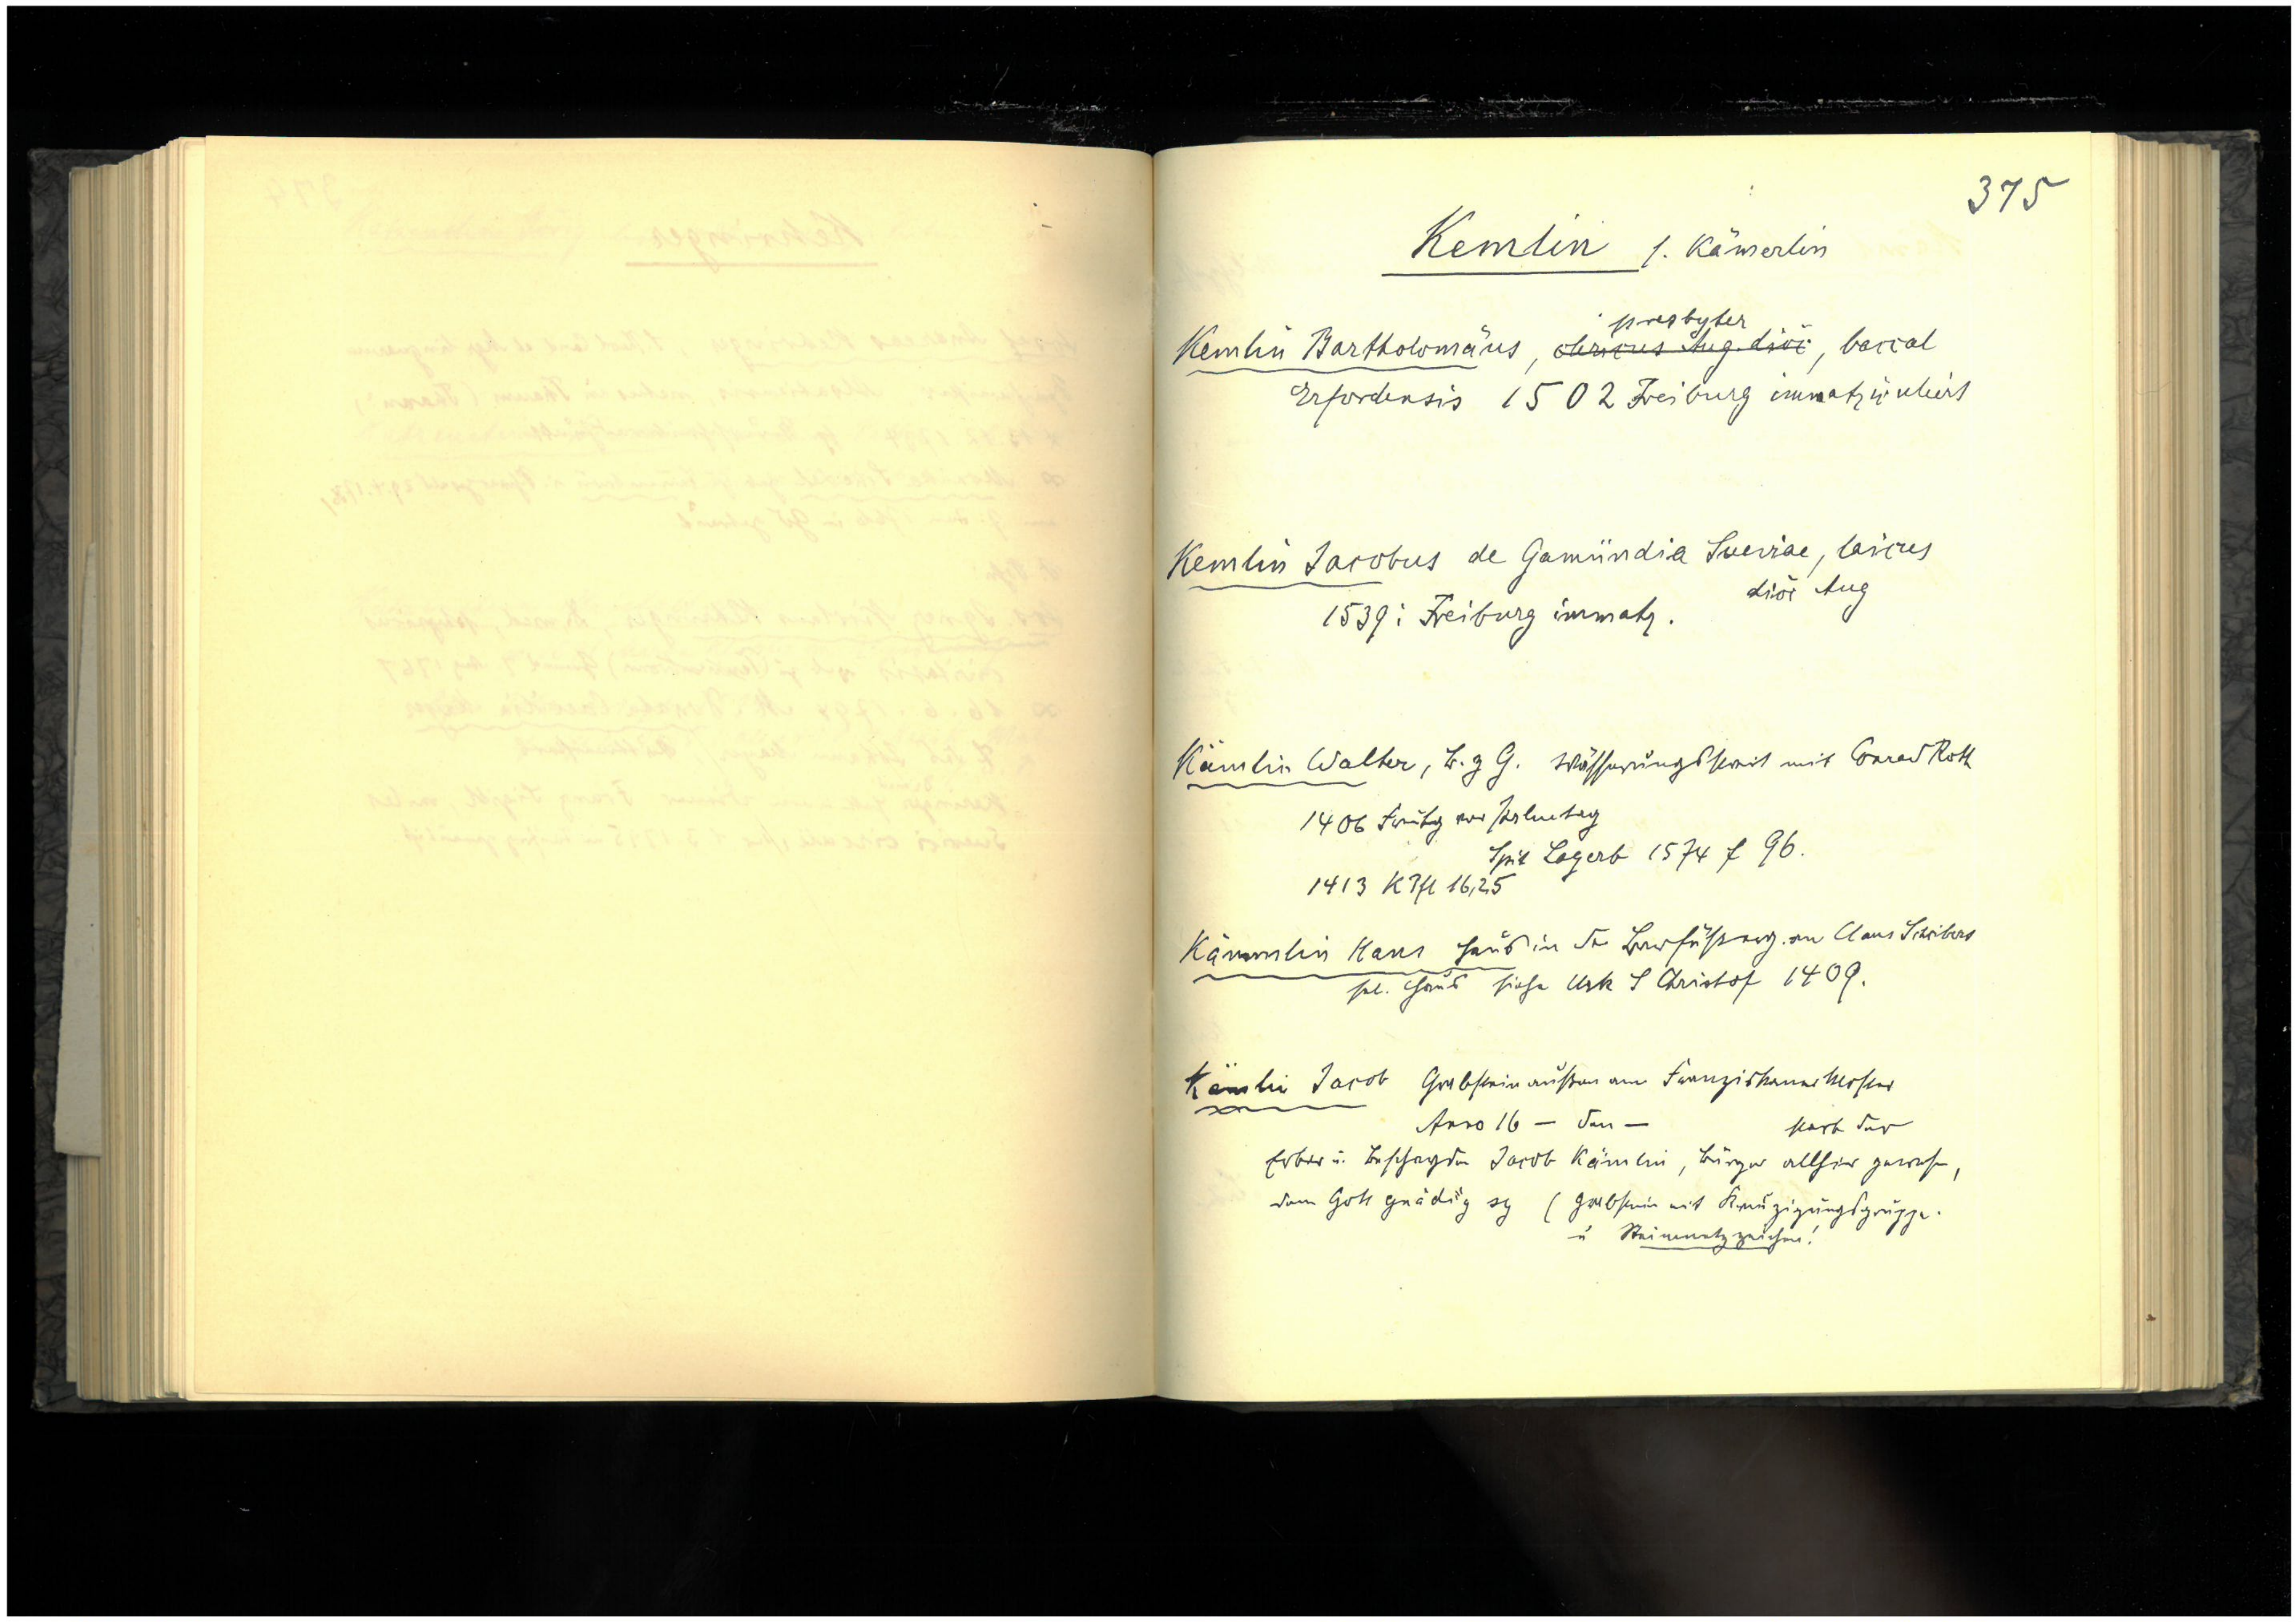 375
Kemlin s. Kämerlin
presbyter
Kemlin Bartholomäus, clericus Aug. diöc, baccal
Erfordensis 1502 Freiburg immatrikuliert
Kemlin Jacobus de Gamündia Sueviae, laicus
diöc Aug
1539 i Freiburg immatr.
Kämlin Walter, B. z G. Wässerungsstreit mit Conrad Roth
1406 Freitag vor Palmtag
Spit Lagerb 1574 f 96.
1413 KPfl 16,25
Kämmlin Hans Haus in der Barfüßerg. an Claus Schribers
sel. Haus siehe Urk S Christof 1409.
Kämlin Jacob Grabstein außen am Franziskanerkloster
Anno 16 — den — starb der
Erber u. Bescheyden Jacob Kämlin, Bürger allhier gewesen,
dem Gott gnädig sy ( Grabstein mit Kreuzigungsgruppe.
u Steinmetzzeichen!